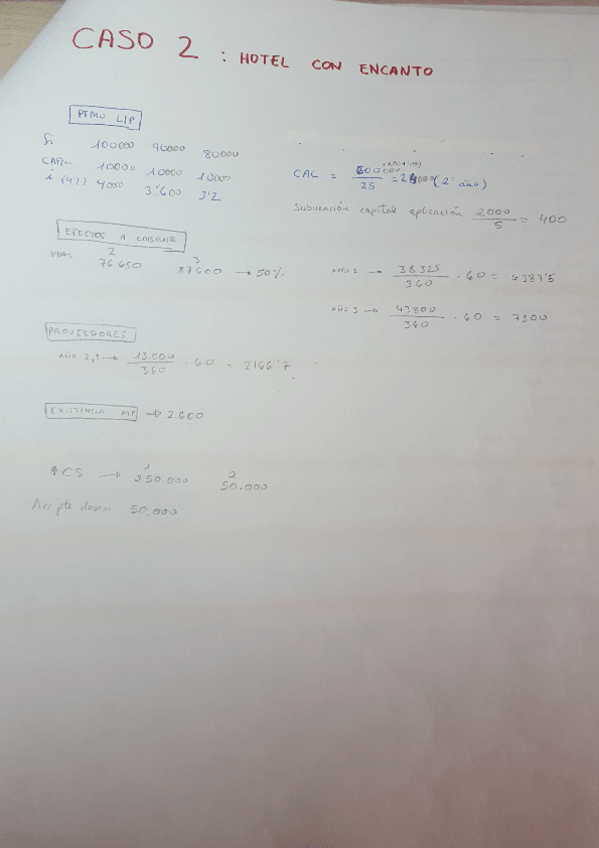 CASO 2 : HOTEL CON ENCANTO
PTMO L/P
Si 100000 90000 80000
10000 10000 10000
i (4%) 4000 3'600 3'2
CAL = 600000 / 25 = 24000 (2º año)
Subvención capital aplicación 2000 / 5 = 400
EFECTOS A COBRAR
2 3
76650 87600 → 50%
año 2 → 38325 / 360 · 60 = 6387'5
año 3 → 43800 / 360 · 60 = 7300
PROVEEDORES
año 2,3 → 13.000 / 360 · 60 = 2166'7
EXISTENCIA MP → 2.600
CS → 250.000 50.000
1 2
50.000